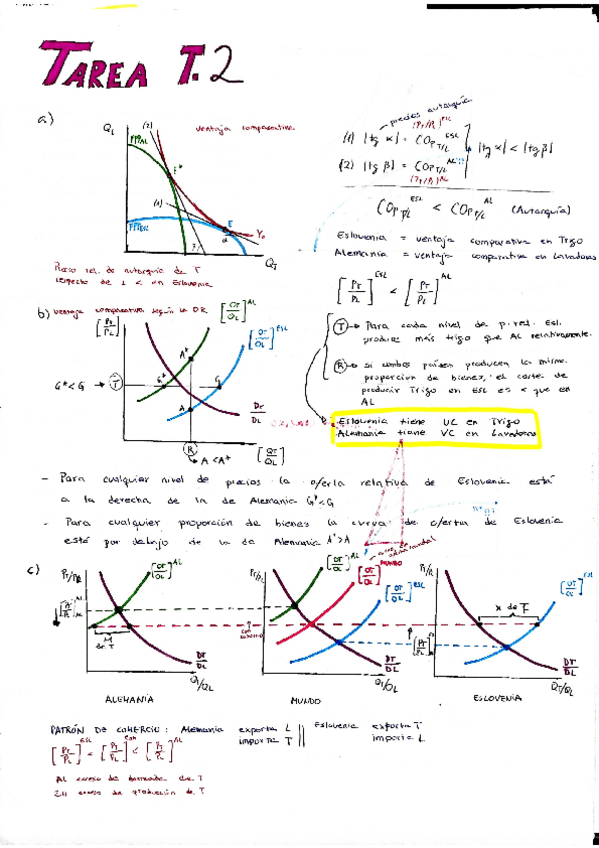 TAREA T.2
a)
QL
(2)
ventaja comparativa
PPFAL
E*
(1)
E
Y0
PPFESL
α
β
QT
Precio rel. de autarquía de T
respecto de L < en Eslovenia
precios autarquía
(PT/PL)ESL
(1) |tg α| = COPT/L ESL
(2) |tg β| = COPT/L AL
(PT/PL)AL
|tg α| < |tg β|
COPT/L ESL < COPT/L AL (Autarquía)
Eslovenia = ventaja comparativa en Trigo
Alemania = ventaja comparativa en Lavadoras
[PT/PL]ESL < [PT/PL]AL
b) ventaja comparativa según la OR
[PT/PL]
[QT/QL]AL
[QT/QL]ESL
A*
G* < G → T
G*
G
A
DT/DL
R
A < A*
[QT/QL]
T → Para cada nivel de p. rel. Esl.
produce más trigo que AL relativamente.
R → si ambos países producen la misma
proporción de bienes, el coste de
producir Trigo en ESL es < que en
AL
Eslovenia tiene VC en Trigo
Alemania tiene VC en Lavadoras
- Para cualquier nivel de precios la oferta relativa de Eslovenia está
a la derecha de la de Alemania G* < G
- Para cualquier proporción de bienes la curva de oferta de Eslovenia
está por debajo de la de Alemania A* > A
c)
PT/PL
[QT/QL]AL
[PT/PL]AL
M de T
DT/DL
QT/QL
ALEMANIA
[QT/QL]AL
[QT/QL]MUNDO
[QT/QL]ESL
DT/DL
QT/QL
MUNDO
X de T
[QT/QL]ESL
[PT/PL]
DT/DL
QT/QL
ESLOVENIA
PATRÓN DE COMERCIO: Alemania exporta L || Eslovenia exporta T
importa T || importa L
[PT/PL]ESL < [PT/PL] < [PT/PL]AL
AL exceso de demanda de T
Esl exceso de producción de T